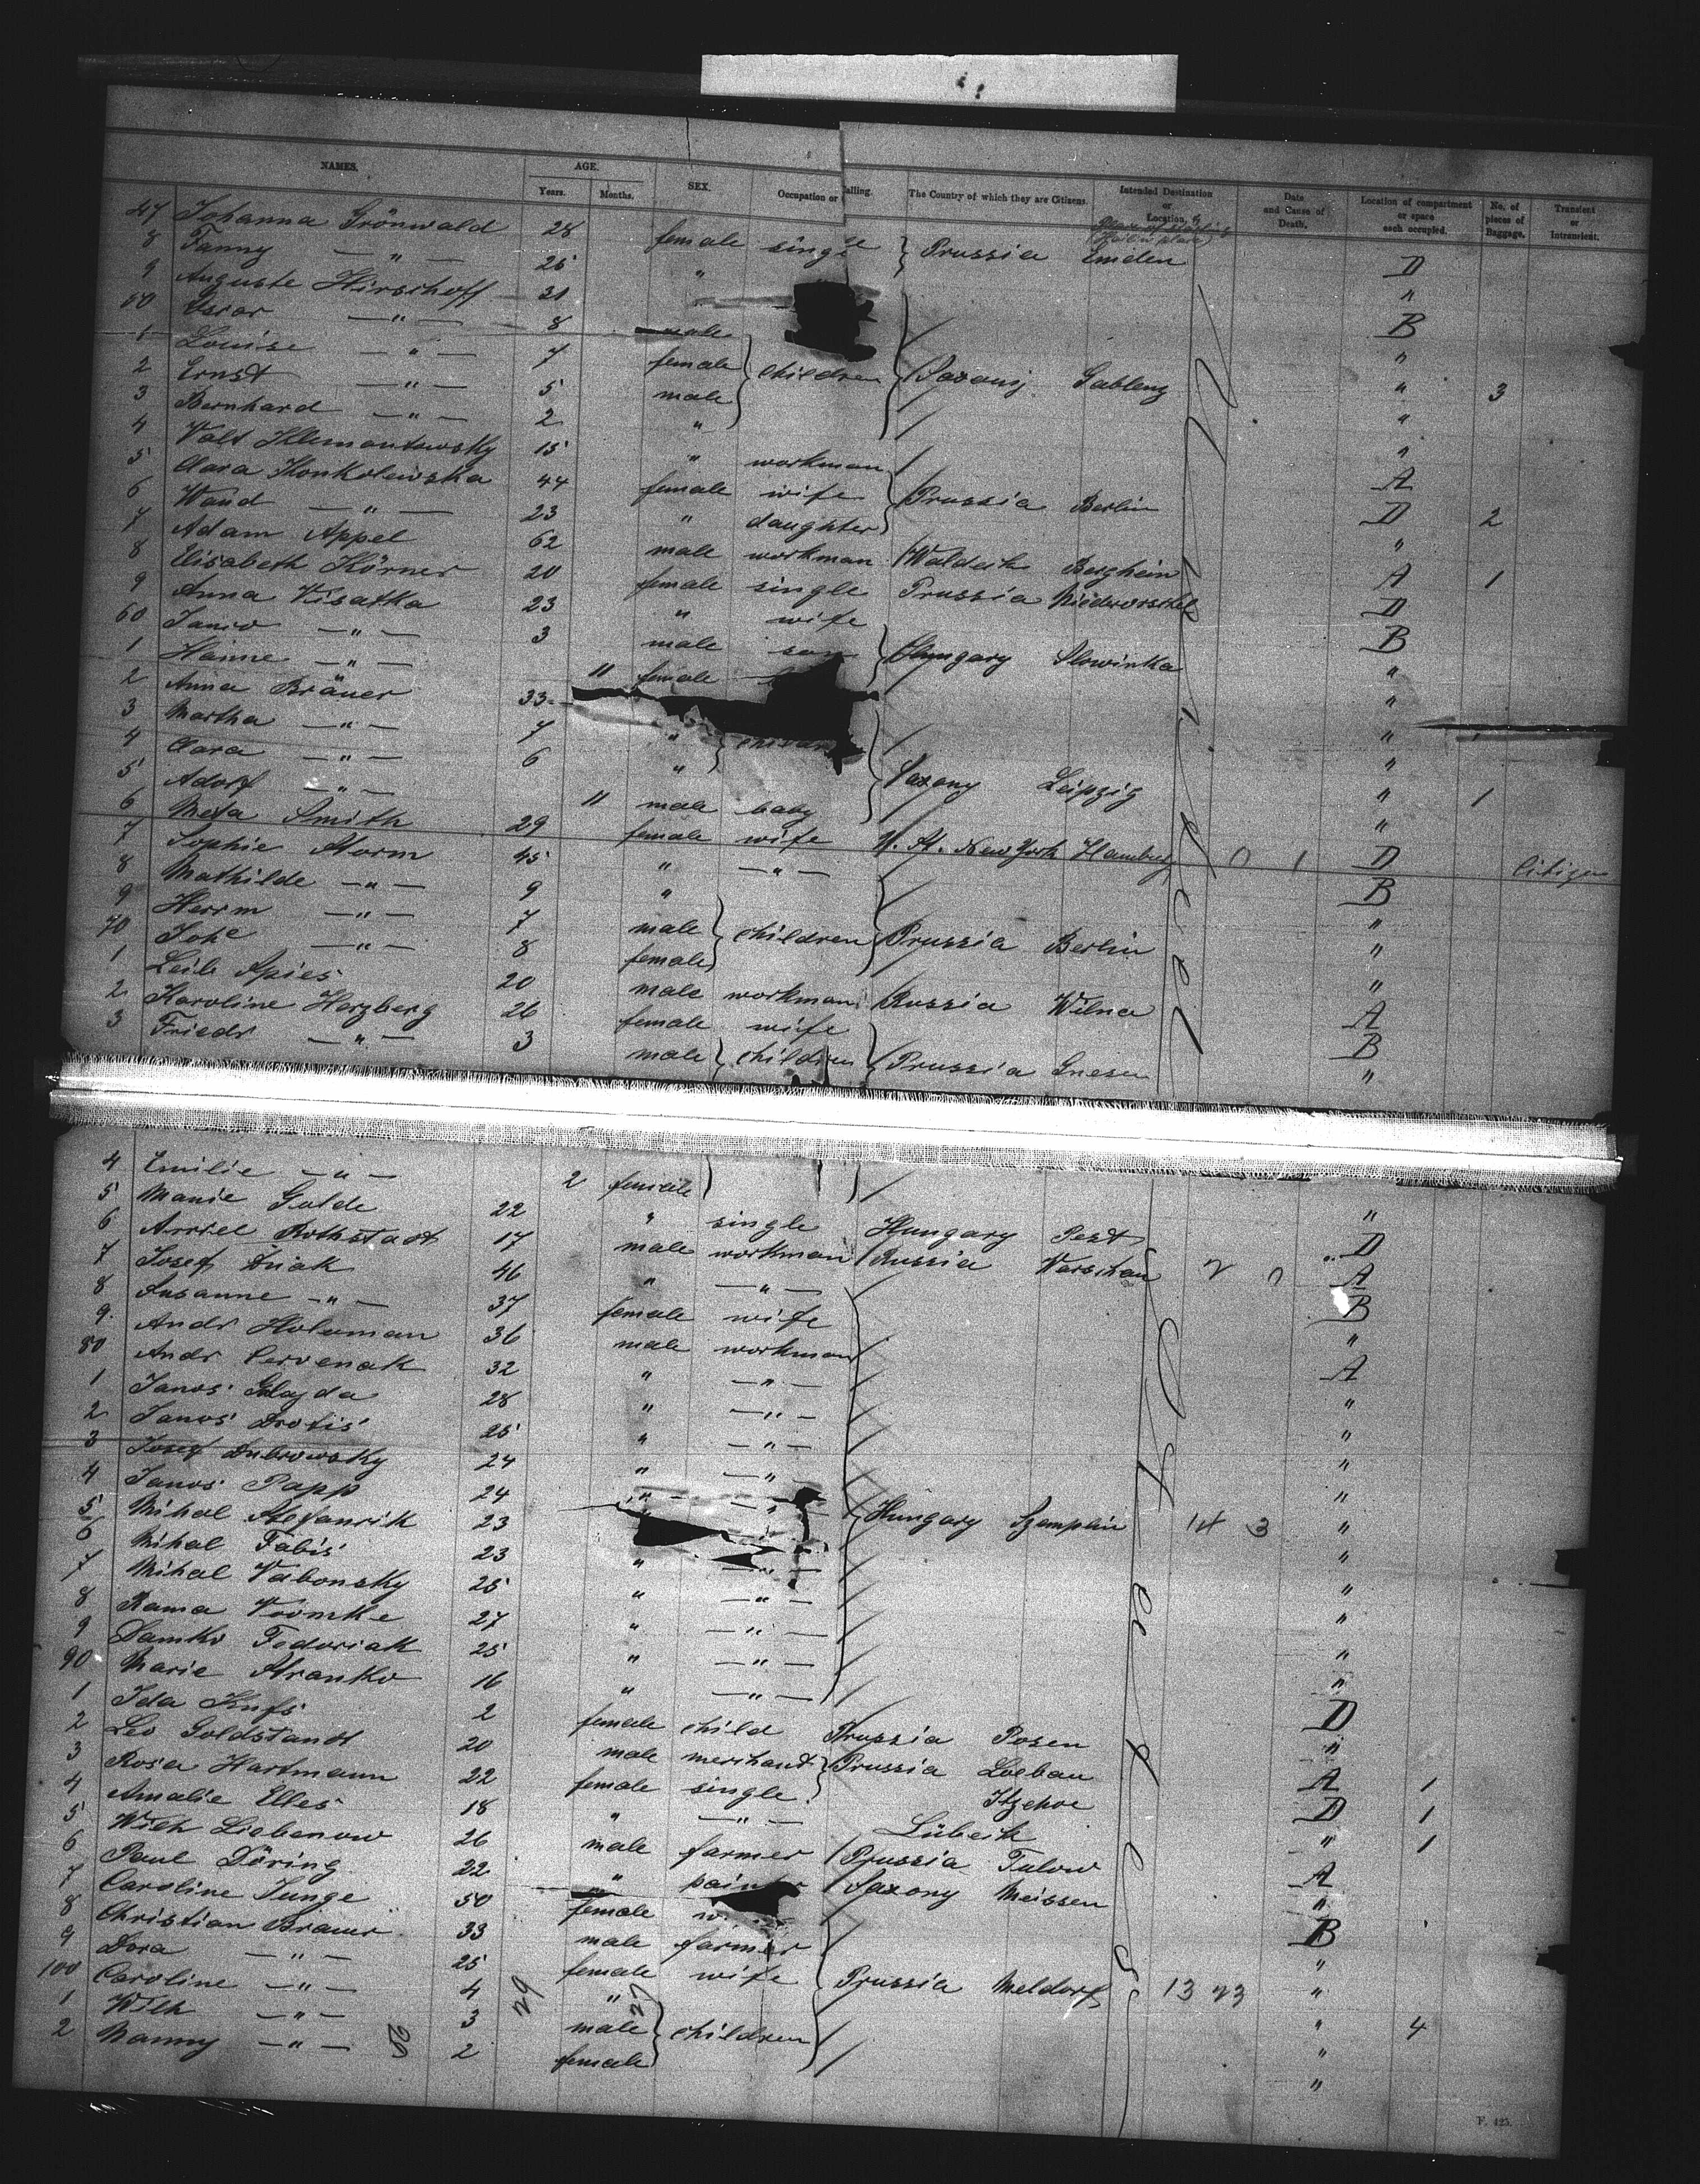 NAMES. AGE. Years. Months. SEX. Occupation or Calling. The Country of which they are Citizens. Intended Destination or Location, Date and Cause of Death. Location of compartment or space each occupied. No. of pieces of Baggage. Transient or Intransient.
47 Johanna Grönwald 28 female single } Prussia Emden D
8 Fanny —"— 25 " "
9 Auguste Hirschoff 31 B
50 Oscar —"— 8 male "
1 Louise —"— 7 female children Saxony Gablenz " 3
2 Ernst —"— 5 male "
3 Bernhard —"— 2 " "
4 Valt Klemontowsky 15 " workman A
5 Clara Konkolewska 44 female wife Prussia Berlin D 2
6 Wand —"— 23 " daughter "
7 Adam Appel 62 male workman Waldeck Bergheim A 1
8 Elisabeth Körner 20 female single Prussia D
9 Anna Kisatka 23 " wife B
60 —"— 3 male son Hungary Slowinka "
1 Hanne —"— 11 female "
2 Anna Bräuer 33 "
3 Martha —"— 7 " children "
4 Clara —"— 6 " Saxony Leipzig " 1
5 Adorf —"— 11 male baby "
6 Meta Smith 29 female wife U. St. New York Hamburg 0 1 D Citizen
7 Sophie Storm 45 " —"— B
8 Mathilde —"— 9 " "
9 Herrm —"— 7 male children Prussia Berlin "
70 Johe —"— 8 female "
1 Leib Spies 20 male workman Russia Wilna A
2 Karoline Herzberg 26 female wife B
3 Friedr —"— 3 male children Prussia Gnesen "
4 Emilie —"— 2 female "
5 Marie Golde 22 " single Hungary Pest D
6 Rothstadt 17 male workman Russia Warschau 2 0 A
7 Josef Duak 46 " —"— B
8 Susanne —"— 37 female wife "
9 Andr Holoman 36 male workman A
80 Andr Cervenak 32 " —"— "
1 Janos Glagda 28 " —"— "
2 Janos Drotis 25 " —"— "
3 Josef Dubrowsky 24 " —"— "
4 Janos Papp 24 " —"— "
5 Mihal Stefanrik 23 Hungary Szemplin 14 3 "
6 Mihal Fabis 23 " —"— "
7 Mihal Vabonsky 25 " —"— "
8 Rama 27 " —"— "
9 Damko Fedoriak 25 " —"— "
90 Marie Stranko 16 " —"— D
1 Ida 2 female child Prussia Posen "
2 Leo Goldstandt 20 male merchant Prussia Loebau A 1
3 Rosa Hartmann 22 female single Itzehoe D 1
4 Amalie Elles 18 " —"— Lübeck " 1
5 Wilh Liebenow 26 male farmer Prussia Tulow A
6 Paul Döring 22 " painter Saxony Meissen "
7 Caroline Junge 50 female B
8 Christian Bramer 33 male farmer "
9 Dora —"— 25 female wife Prussia Meldorf 13 23 "
100 Caroline —"— 4 " " 4
1 Wilh —"— 3 male children "
2 Nanny —"— 2 female "
F. 425.